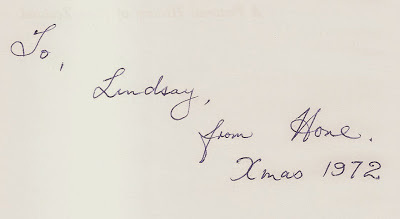 To,
Lindsay,
from Hone.
Xmas 1972